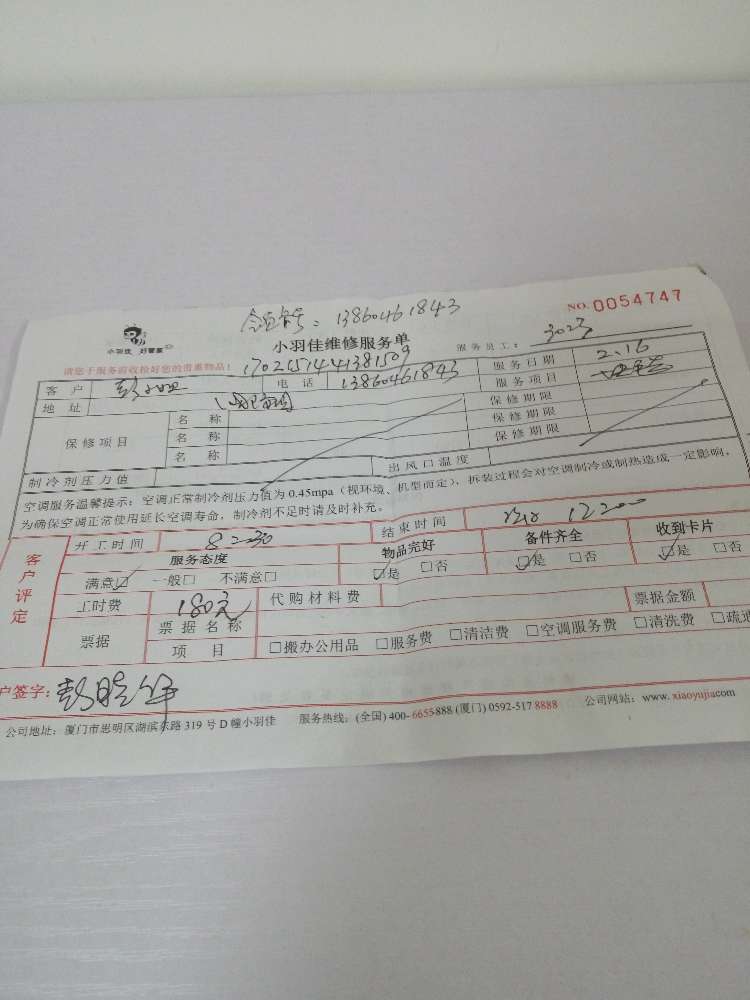 会员卡号：13860461843
NO. 0054747
小羽佳 好管家
小羽佳维修服务单
服务员工： 3023
请您于服务前收捡好您的贵重物品！ 17021514441381509
客户 电话 13860461843 服务日期 2.16
地址 服务项目
保修项目 名称 保修期限
名称 保修期限
名称 保修期限
制冷剂压力值 出风口温度
空调服务温馨提示：空调正常制冷剂压力值为 0.45mpa（视环境、机型而定），拆装过程会对空调制冷或制热造成一定影响，
为确保空调正常使用延长空调寿命，制冷剂不足时请及时补充。
客户评定
开工时间 8:30 结束时间 12:00
服务态度 物品完好 备件齐全 收到卡片
满意☑ 一般□ 不满意□ ☑是 □否 ☑是 □否 ☑是 □否
工时费 180元 代购材料费 票据金额
票据 票据名称
项目 □搬办公用品 □服务费 □清洁费 □空调服务费 □清洗费 □疏通
户签字：
公司地址：厦门市思明区湖滨东路 319 号 D 幢小羽佳 服务热线：(全国) 400-6655888 (厦门) 0592-517 8888 公司网站：www.xiaoyujiacom